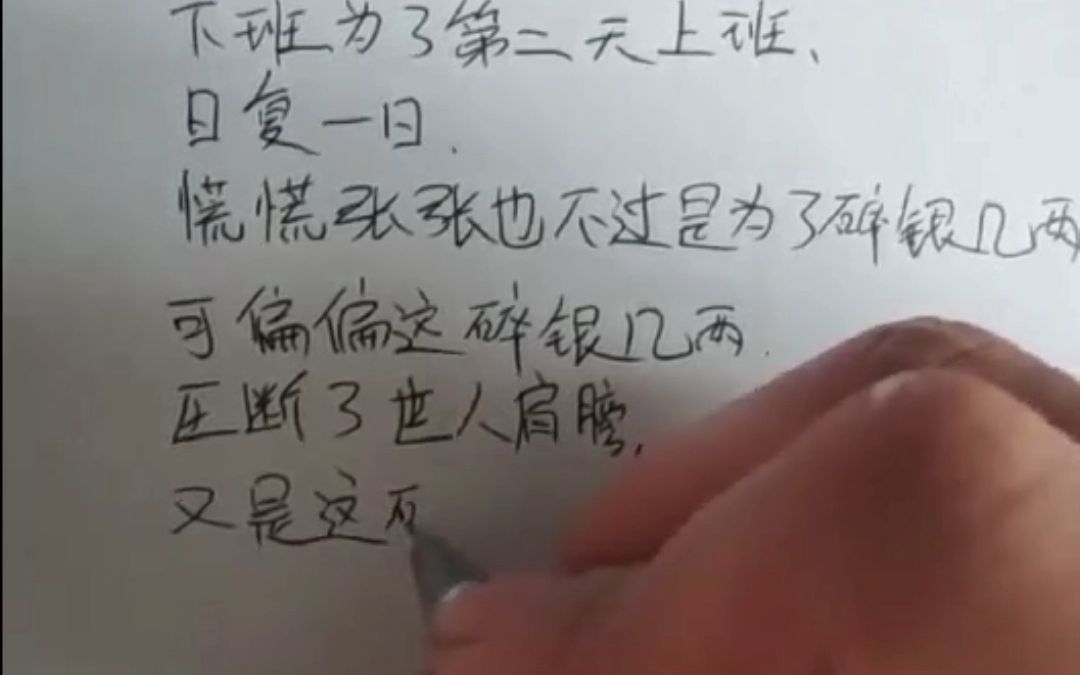 下班为了第二天上班、
日复一日.
慌慌张张也不过是为了碎银几两
可偏偏这碎银几两.
压断了世人肩膀,
又是这